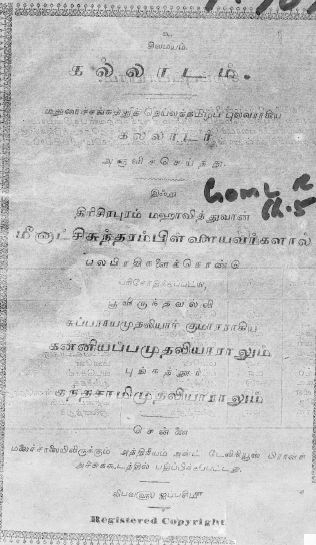 உ
சிவமயம்.
கல்லாடம்.
மதுரைச்சங்கத்துத் தெய்வத்தமிழ்ப் புலவராகிய
கல்லாடர்
அருளிச்செய்தது.
இஃது
திரிசிரபுரம் மஹாவித்துவான்
மீனாட்சிசுந்தரம்பிள்ளையவர்களால்
பலபிரதிகளைக்கொண்டு
பரிசோதிக்கப்பட்டு,
பூவிருந்தவல்லி
சுப்பராயமுதலியார் குமாரராகிய
கன்னியப்பமுதலியாராலும்
புங்கத்தூர்
கந்தசாமிமுதலியாராலும்
சென்னை
அச்சுக்கூடத்தில் பதிப்பிக்கப்பட்டது.
Registered Copyright.